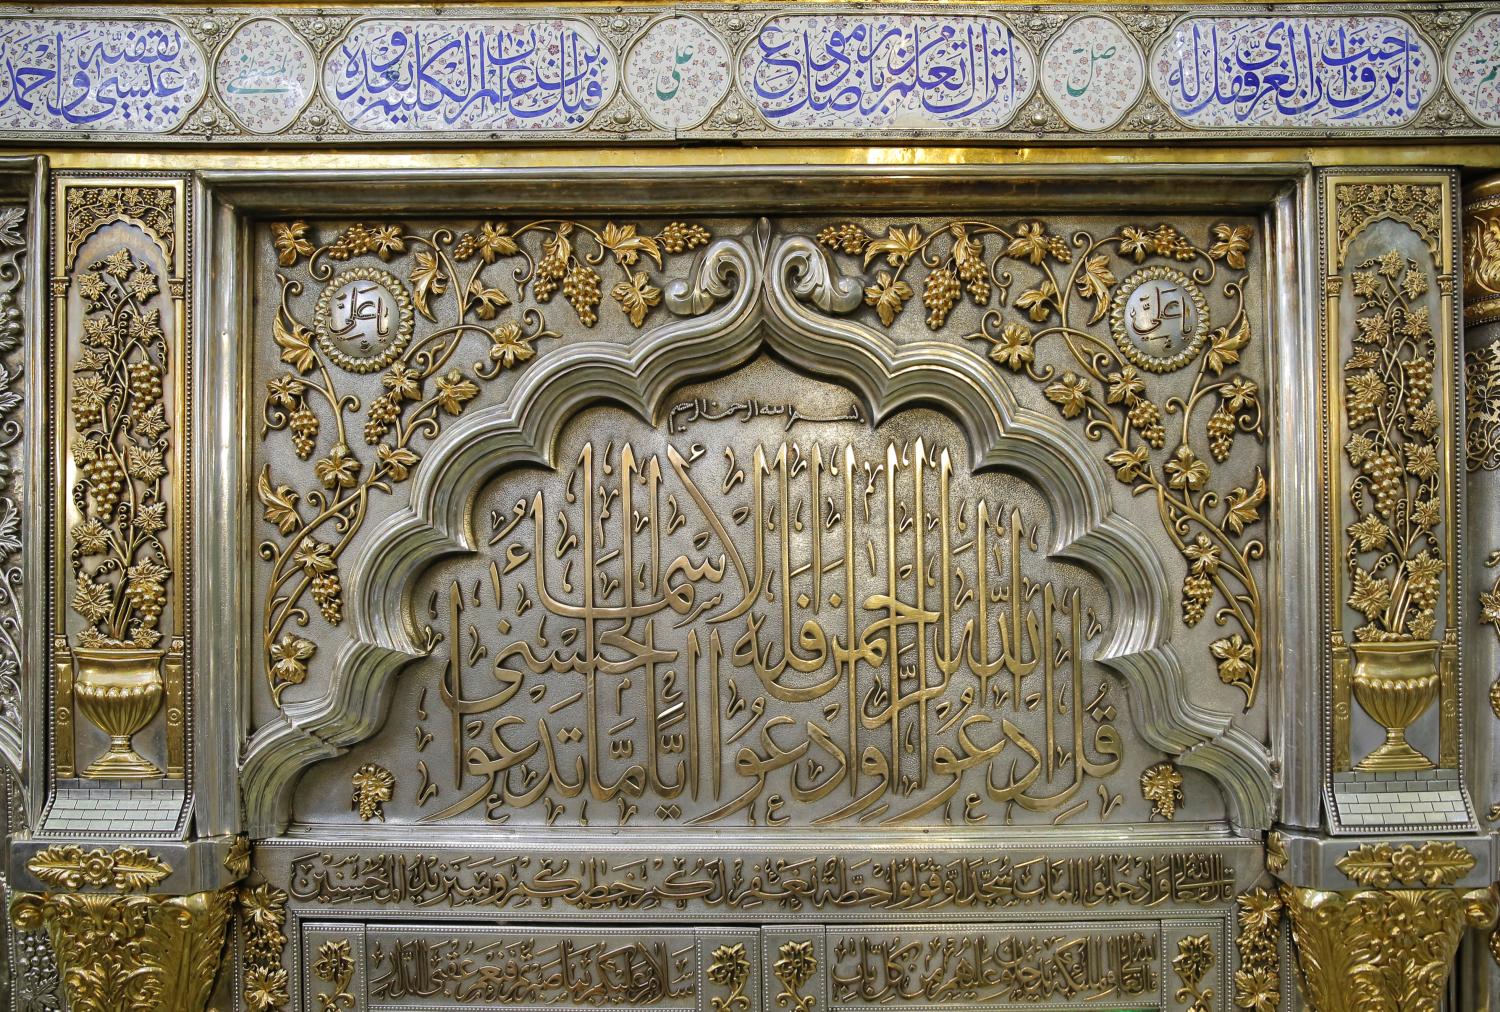 يا برق إن جئت الغري فقل له صل أتراك تعلم من بأرضك مودع على فيك ابن عمران الكليم وبعده المصطفى عيسى يقفيه وأحمد
يا علي
يا علي
بسم الله الرحمن الرحيم
قل ادعوا الله أو ادعوا الرحمن أيا ما تدعوا فله الأسماء الحسنى
قال الله تعالى وادخلوا الباب سجدا وقولوا حطة نغفر لكم خطاياكم وسنزيد المحسنين
قال الله تعالى والملائكة يدخلون عليهم من كل باب
سلام عليكم بما صبرتم فنعم عقبى الدار